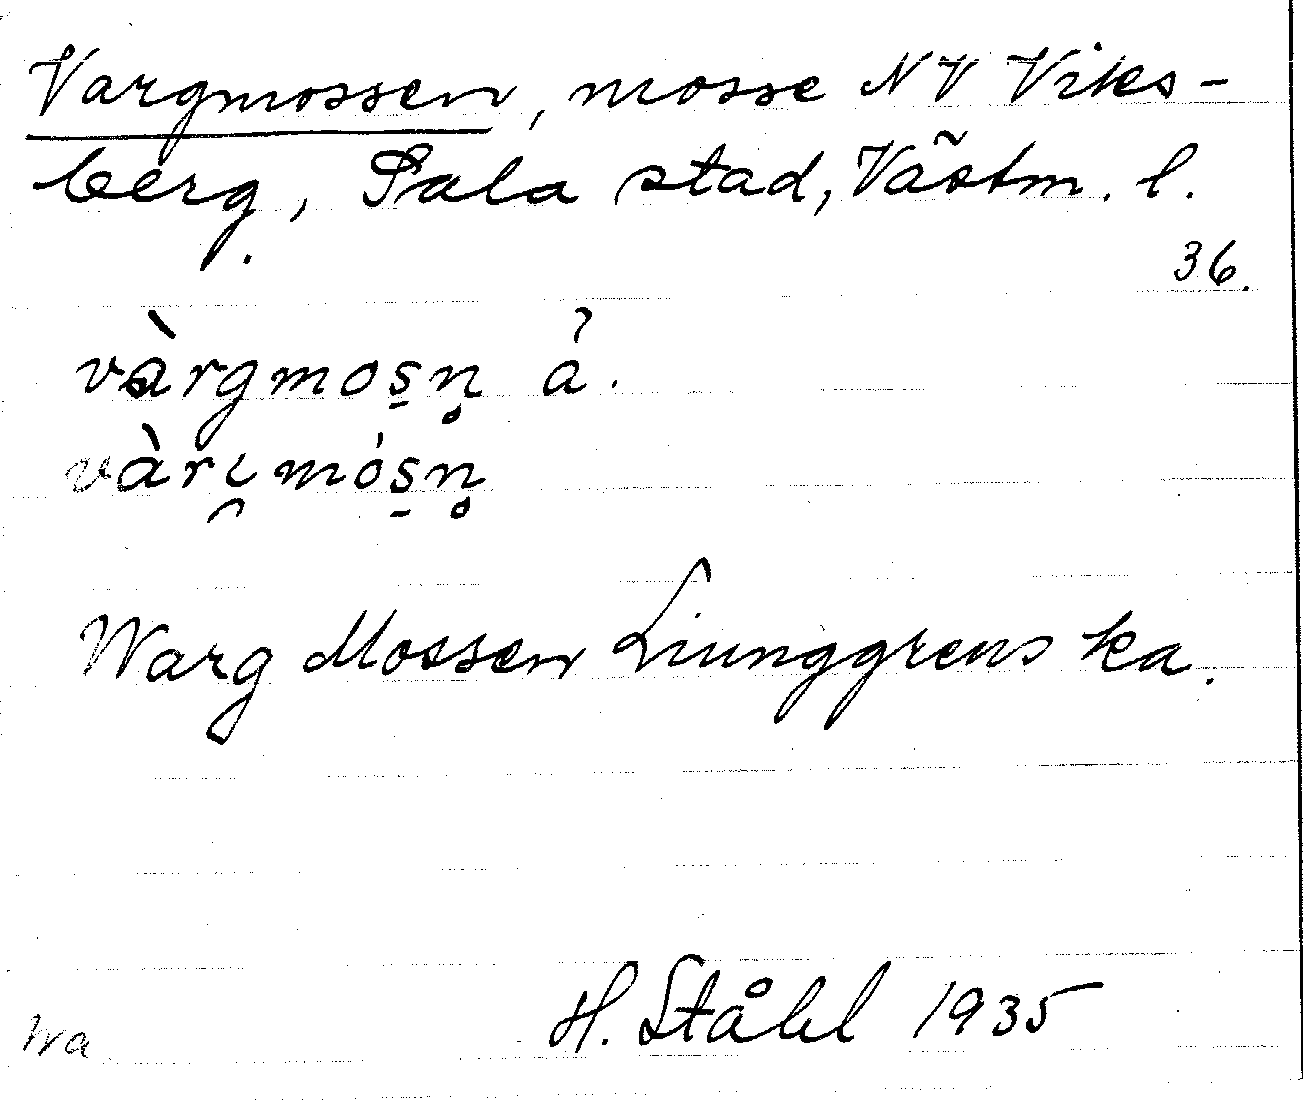 Vargmossen, mosse NV Viks-
berg, Sala stad, Västm. l.
36.
vàrgmos̱n̥ ả.
vàrι̯mós̱n̥
Warg Mossen Liunggrens ka.
H. Ståhl 1935
Wa